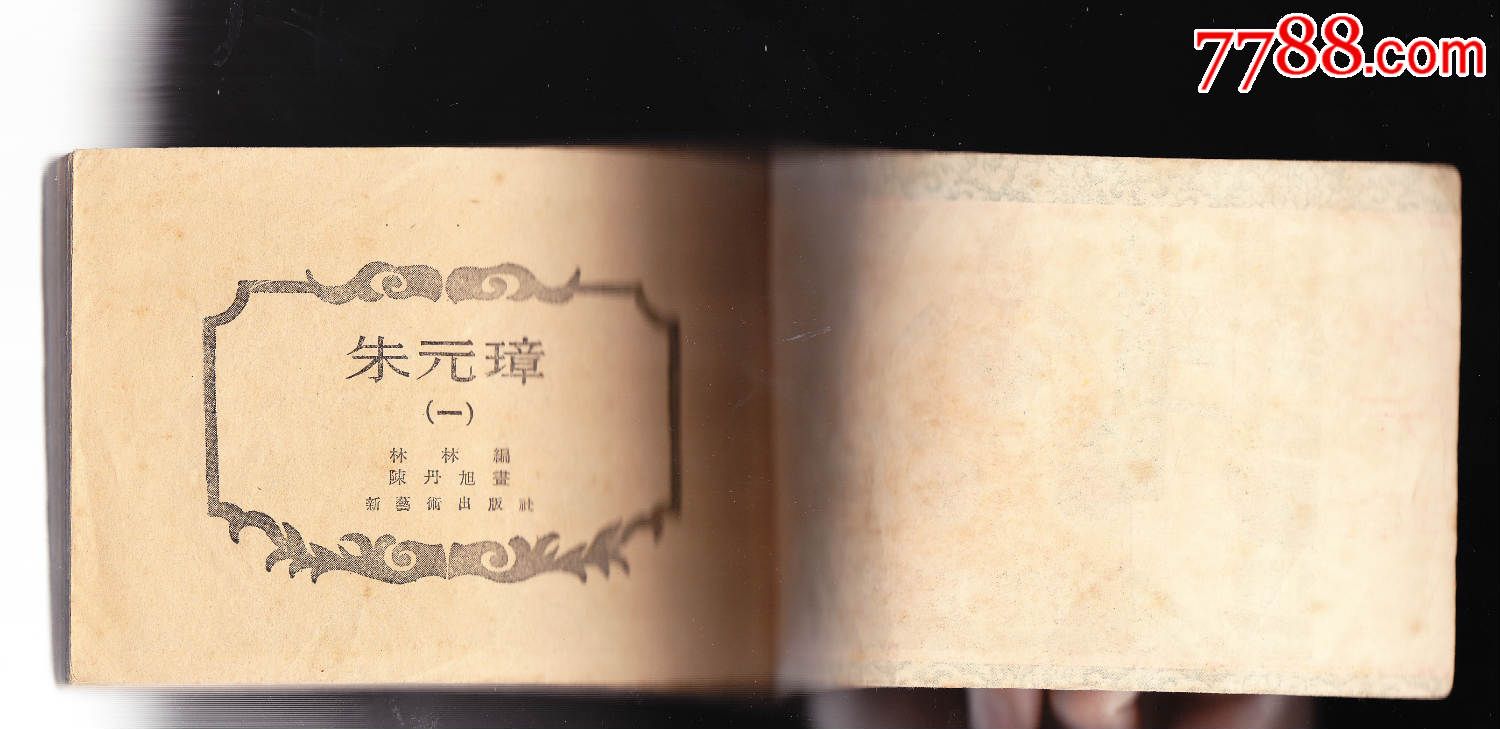 7788.com
朱元璋
(一)
林林編
陳丹旭畫
新藝術出版社